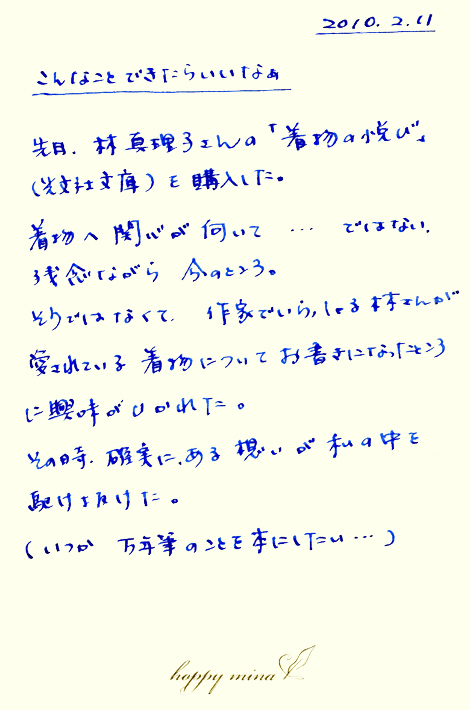 2010.2.11
こんなことできたらいいなぁ
先日、林真理子さんの「着物の悦び」
(光文社文庫)を購入した。
着物へ関心が向いて … ではない、
残念ながら 今のところ。
そうではなくて、作家でいらっしゃる林さんが
愛されている着物についてお書きになったところ
に興味がひかれた。
その時、確実に、ある想いが私の中を
駆け抜けた。
(いつか 万年筆のことを本にしたい…)
happy mina